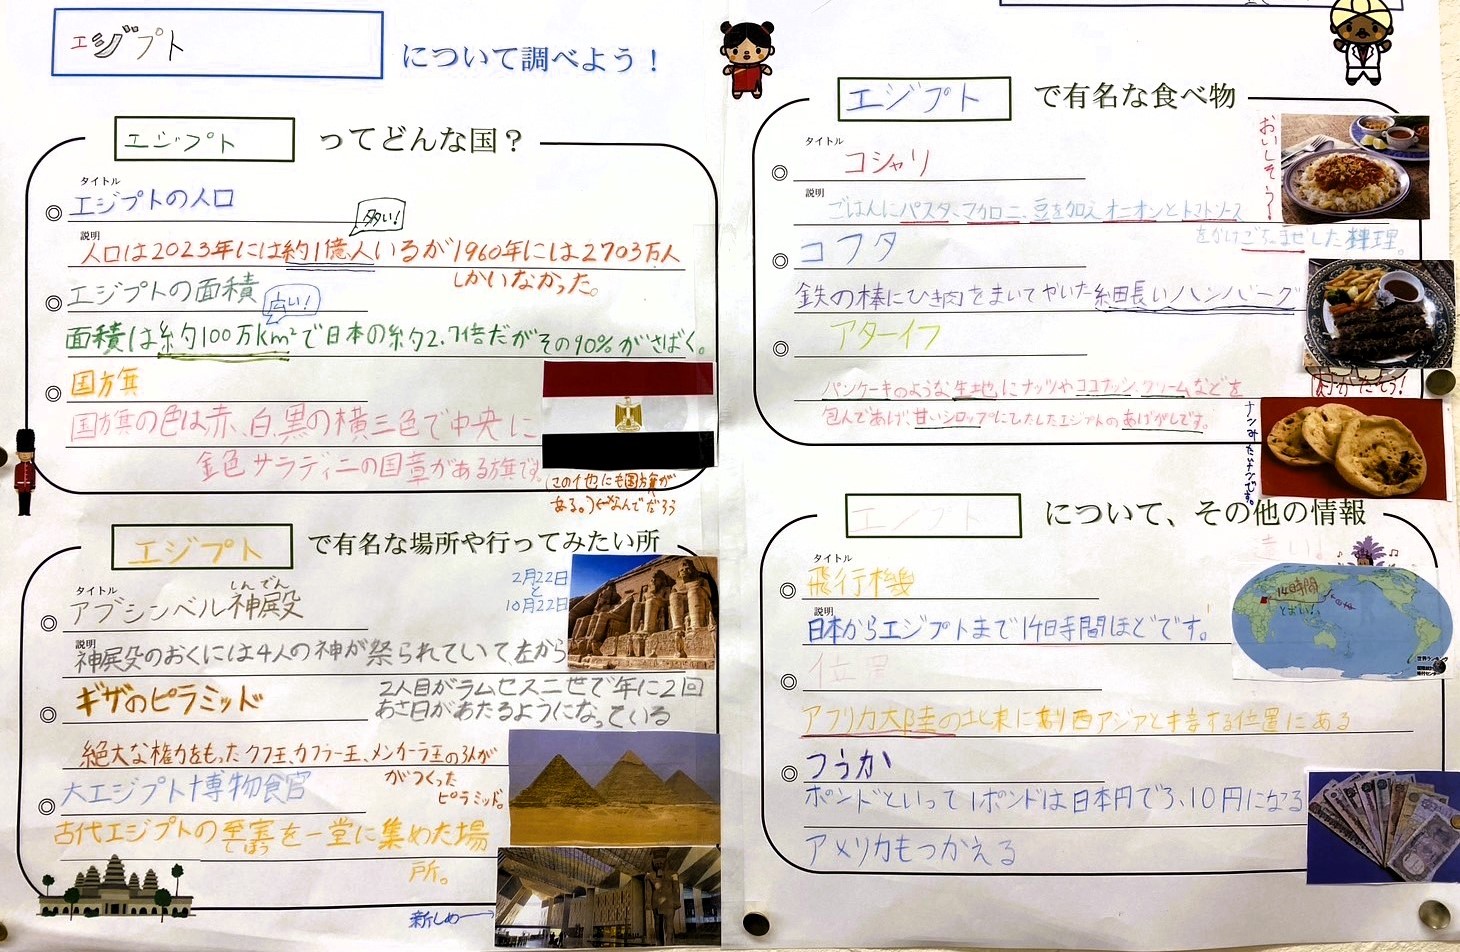 エジプト
について調べよう！
エジプト
ってどんな国？
タイトル
エジプトの人口
多い！
説明
人口は2023年には約1億人いるが1960年には2703万人
しかいなかった。
エジプトの面積
広い！
面積は約100万km²で日本の約2.7倍だがその90%がさばく。
国旗
国旗の色は赤、白、黒の横三色で中央に
金色サラディーンの国章がある旗です。
(この他にも国旗が
ある。)←なんでだろう
エジプト
で有名な場所や行ってみたい所
タイトル
しんでん
アブシンベル神殿
2月22日
と
10月22日
説明
神殿のおくには4人の神が祭られていて、左から
2人目がラムセス二世で年に2回
あさ日があたるようになっている
ギザのピラミッド
絶大な権力をもったクフ王、カフラー王、メンカーラ王の3人が
がつくった
ピラミッド。
大エジプト博物館
古代エジプトの至宝を一堂に集めた場
しほう
所。
新しめ→
エジプト
で有名な食べ物
タイトル
コシャリ
おいしそう！
説明
ごはんにパスタ、マカロニ、豆を加えオニオンとトマトソース
をかけごちゃまぜした料理。
コフタ
鉄の棒にひき肉をまいてやいた細長いハンバーグ
アターイフ
パンケーキのような生地にナッツやココナッツ、クリームなどを
包んであげ、甘いシロップにひたしたエジプトのあげがしです。
ナンみたいです。
エジプト
について、その他の情報
タイトル
飛行機
説明
日本からエジプトまで14時間ほどです。
14時間
とおい！
位置
アフリカ大陸の北東にあり西アジアと接する位置にある
つうか
ポンドといって1ポンドは日本円で3、10円になる
アメリカもつかえる